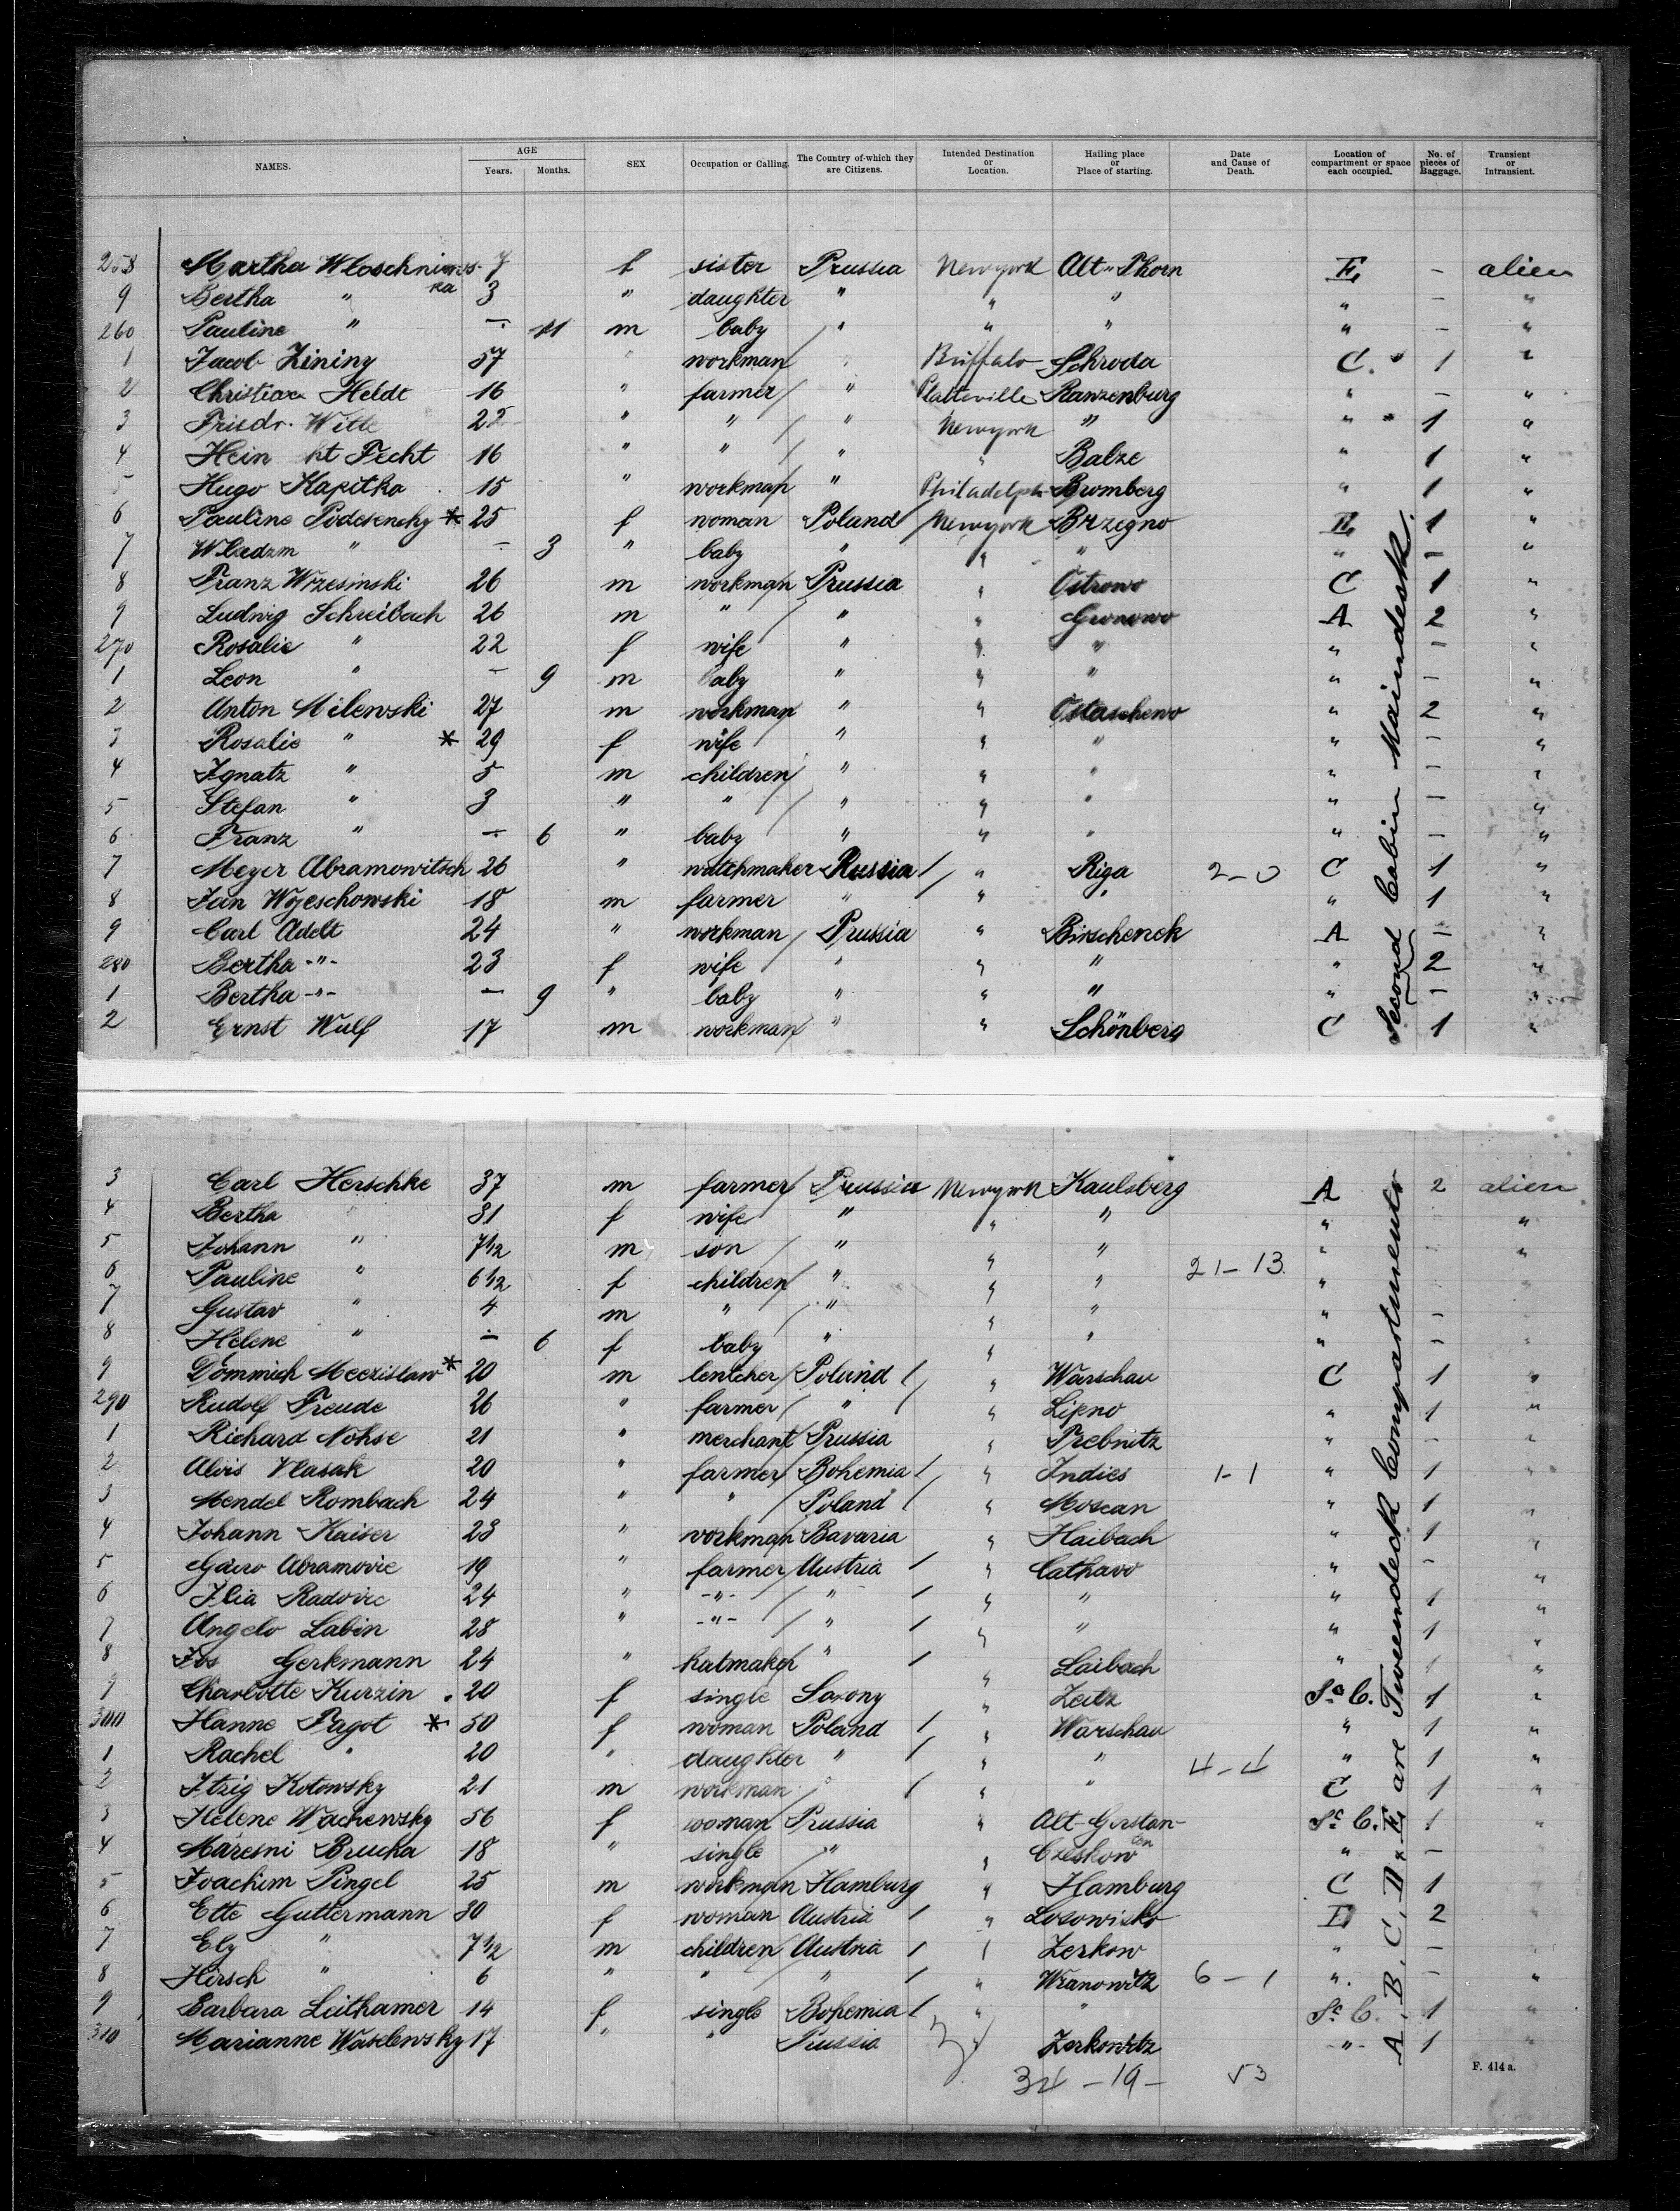 NAMES. AGE Years. Months. SEX Occupation or Calling. The Country of which they are Citizens. Intended Destination or Location. Hailing place or Place of starting. Date and Cause of Death. Location of compartment or space each occupied. No. of pieces of Baggage. Transient or Intransient.
258 Martha Wloschniews- 7 f sister Prussia Newyork Alt-Thorn E. – alien
ka
9 Bertha " 3 " daughter " " " " – "
260 Pauline " – 11 m baby " " " " – "
1 Jacob Zining 57 workman Buffalo Schroda C. 1 "
2 Christian Heldt 16 " farmer " Platteville Ranzenburg " – "
3 Friedr. Witte 22 " " " Newyork " " 1 "
4 Hein ht Fecht 16 " " " " Balze " 1 "
5 Hugo Kapitka 15 " workman " Philadelph. Bromberg " 1 "
6 Pauline Podesenchy * 25 f woman Poland Newyork Brzegno E. 1 "
7 Wladzm " – 3 " baby " " " " – "
8 Franz Wrzesinski 26 m workman Prussia " Ostrowo C 1 "
9 Ludwig Schreibach 26 m " " " Gronowo A 2 "
270 Rosalie " 22 f wife " " " " – "
1 Leon " – 9 m baby " " " " – "
2 Anton Milewski 27 m workman " " Ostaschewo " 2 "
3 Rosalie " * 29 f wife " " " " – "
4 Ignatz " 5 m children " " " " – "
5 Stefan " 3 " " " " " " – "
6 Franz " – 6 " baby " " " " – "
7 Meyer Abramowitsch 26 " watchmaker Russia / " Riga 2–0 C 1 "
8 Jan Wojeschowski 18 m farmer " " " " 1 "
9 Carl Adelt 24 " workman Prussia " Birschenek A – "
280 Bertha -"- 23 f wife " " " " 2 "
1 Bertha -"- – 9 " baby " " " " – "
2 Ernst Wulf 17 m workman " " Schönberg C 1 "
Second Cabin Maindeck.
3 Carl Herschke 37 m farmer Prussia Newyork Kaulsberg A 2 alien
4 Bertha 31 f wife " " " " – "
5 Johann " 7 1/2 m son " " " " – "
6 Pauline " 6 1/2 f children " " " 21–13. "
7 Gustav " 4 m " " " " " –
8 Helene " – 6 f baby " " " " –
9 Dommich Meczislaw * 20 m lentcher Poland / " Warschau C 1 "
290 Rudolf Freude 26 " farmer " / " Lipno " 1 "
1 Richard Nohse 21 " merchant Prussia " Trebnitz " – "
2 Alois Vlasak 20 " farmer Bohemia / " Indies 1–1 " 1 "
3 Mendel Rombach 24 " " Poland / " Moscan " 1 "
4 Johann Kaiser 23 " workman Bavaria " Haibach " 1 "
5 Gairo Abramovic 19 " farmer Austria / " Cathavo " – "
6 Ilia Radovic 24 " -"- " / " " " 1 "
7 Angelo Labin 28 " -"- " / " " " 1 "
8 Jos Gerkmann 24 " hatmaker " / " Laibach " 1 "
9 Charlotte Kurzin 20 f single Saxony " Zeitz Sa C. 1 "
300 Hanne Pagot * 50 f woman Poland / " Warschau " 1 "
1 Rachel " 20 " daughter " / " " 4–4 " 1 "
2 Itzig Kotowsky 21 m workman " / " " C 1 "
3 Helene Wachewsky 56 f woman Prussia " Alt-Gerstan- Sc C. 1 "
4 Maresni Brucka 18 " single " " Czeskow " – "
5 Joachim Pingel 25 m workman Hamburg " Hamburg C 1 "
6 Ette Guttermann 30 f woman Austria / " Losowisko E 2 "
7 Ely " 7 1/2 m children Austria / " Zerkow " – "
8 Hirsch " 6 " " " / " Wranowitz 6–1 " – "
9 Barbara Leithamer 14 f single Bohemia / " " Sc C. 1 "
310 Marianne Waselewsky 17 " " Prussia " Zerkowitz -"- 1 "
A. B. C. D & E are Tweendeck Compartments
34 –19– 53
F. 414 a.